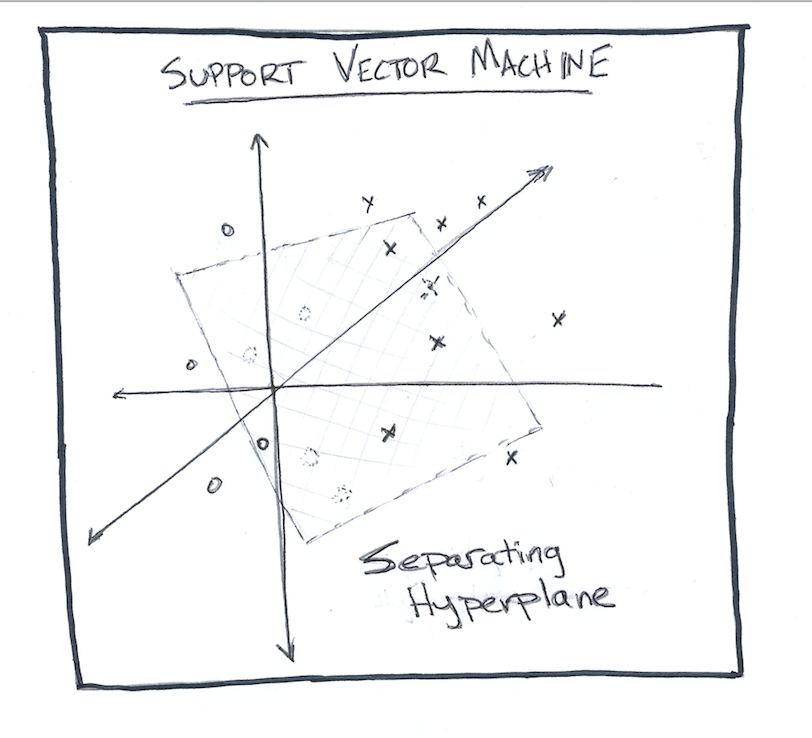 SUPPORT VECTOR MACHINE
Separating
Hyperplane